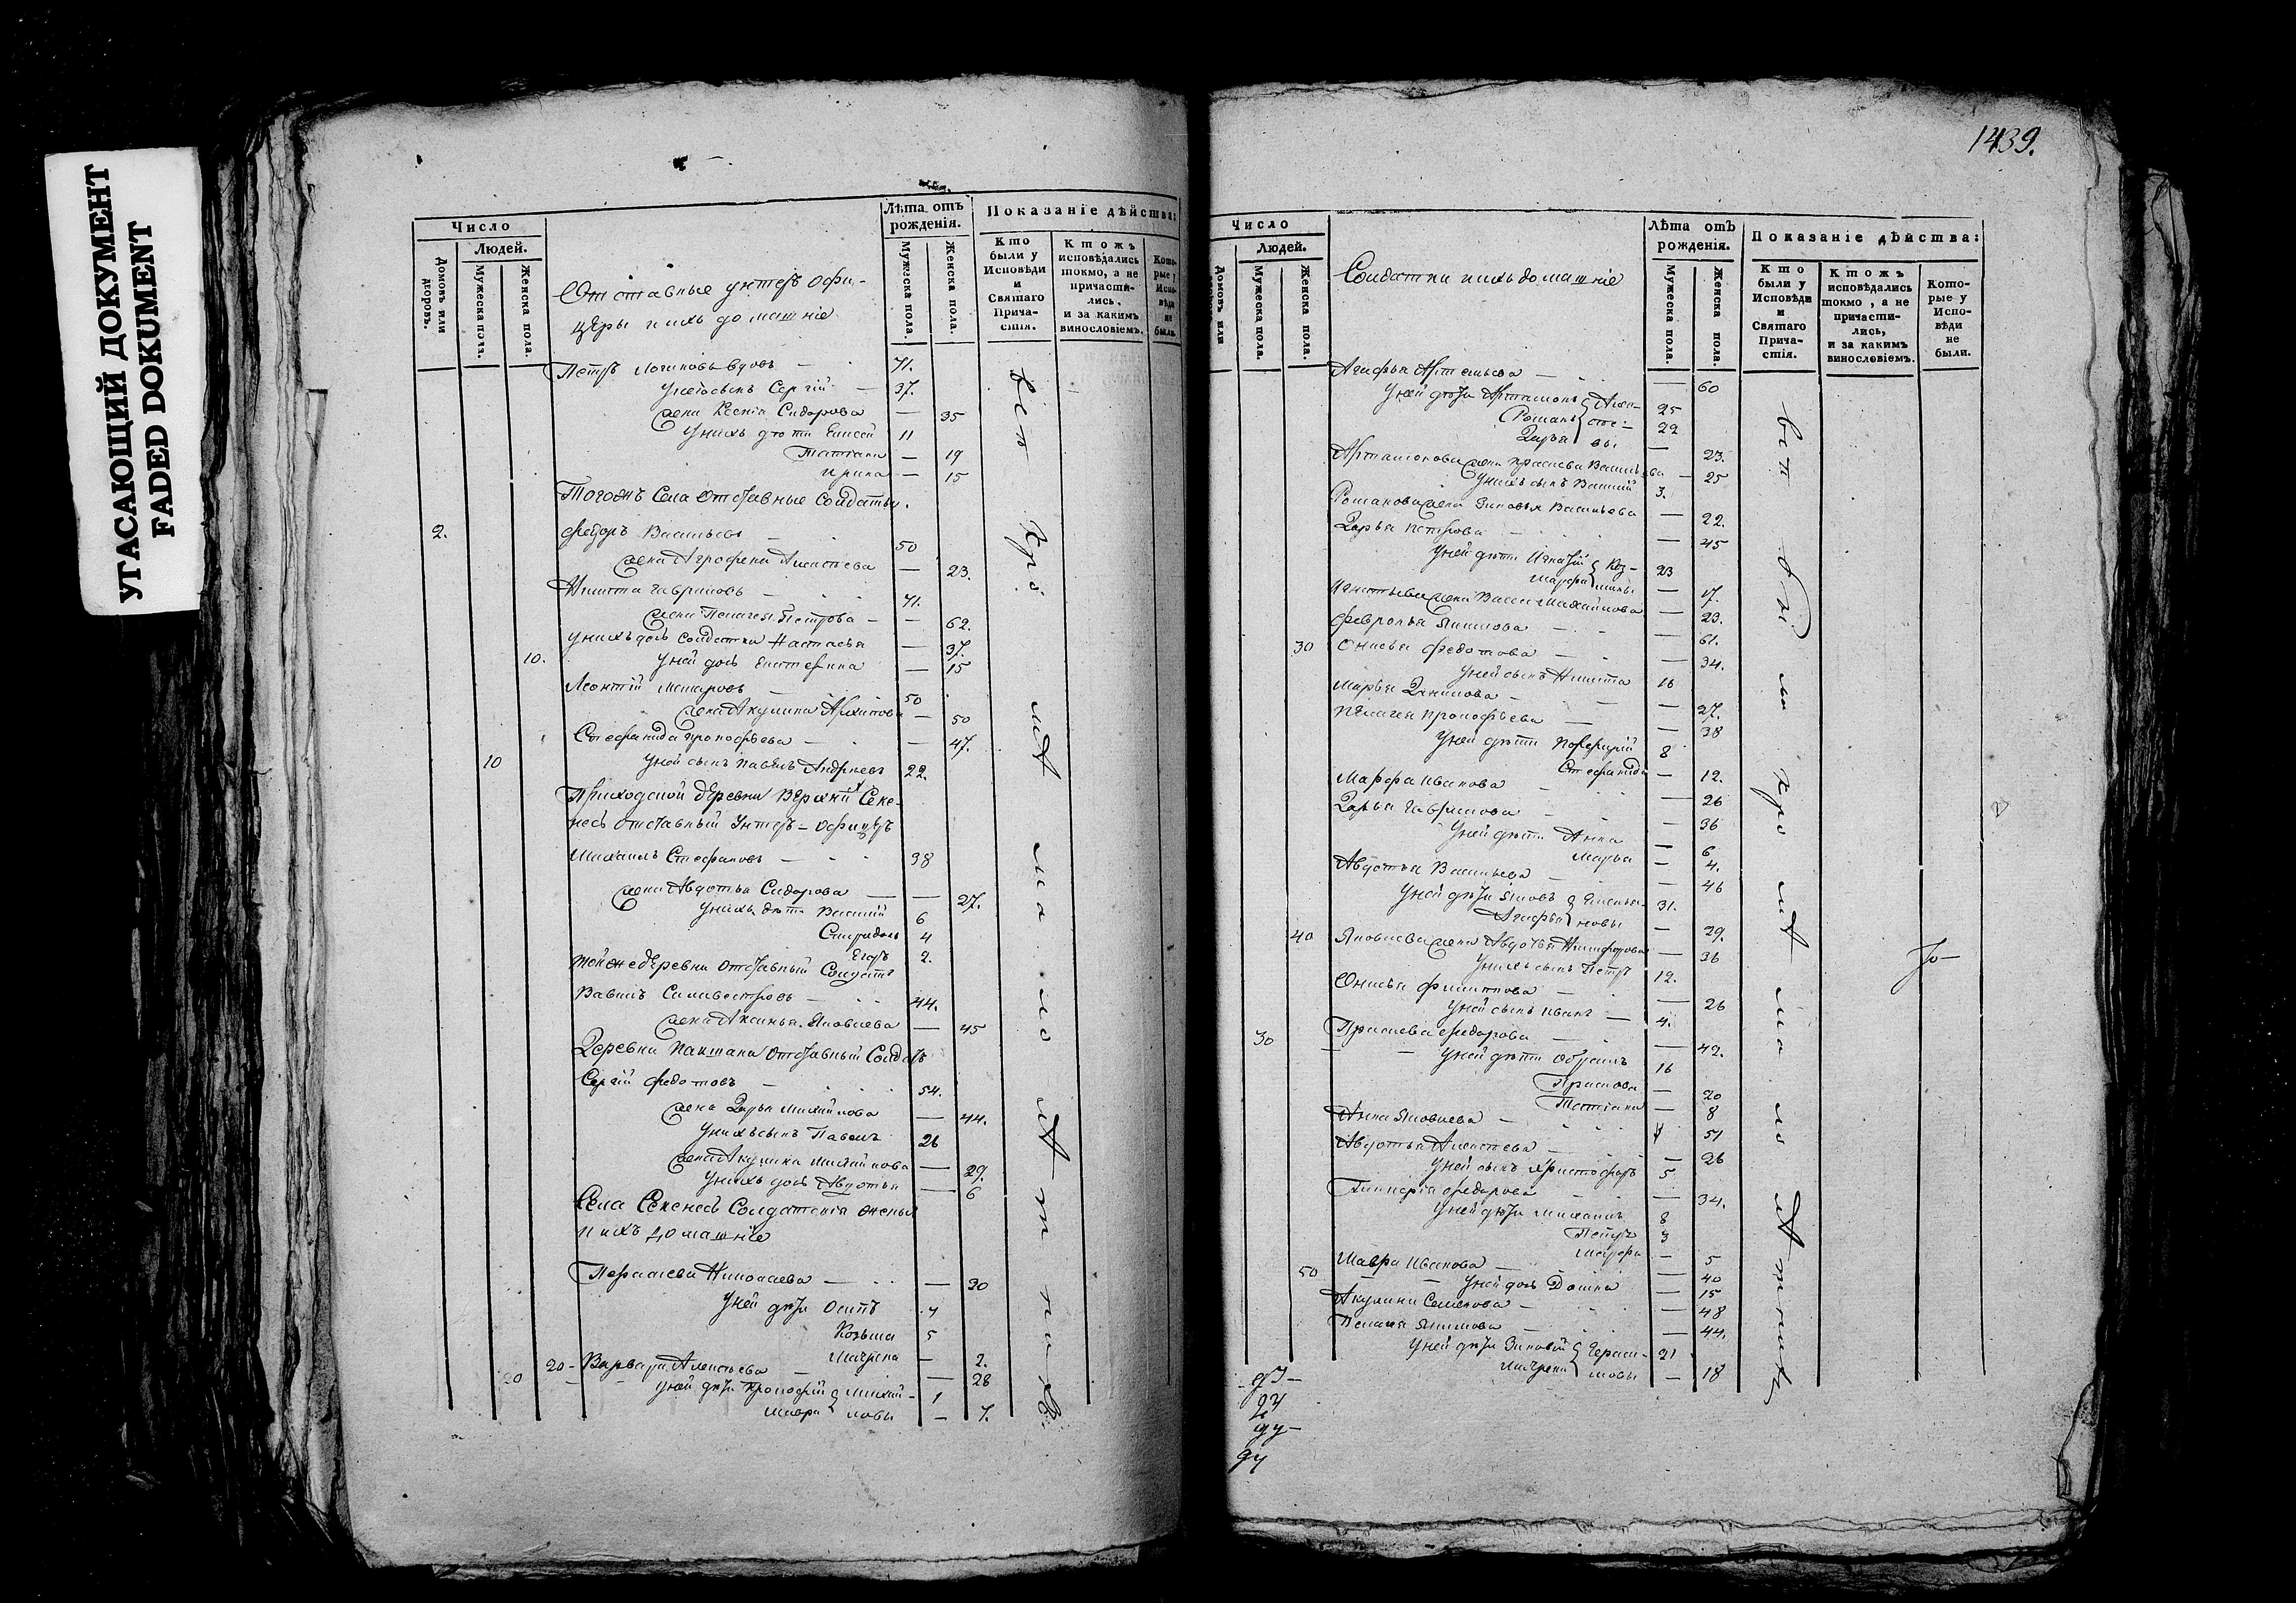 УГАСАЮЩИЙ ДОКУМЕНТ
FADED DOKUMENT
Число
Людей.
Домовъ или дворовъ.
Мужеска пола.
Женска пола.
Отставные унтеръ офи-
церы и ихъ домашніе
Лѣта отъ рожденія.
Мужеска пола.
Женска пола.
Показаніе дѣйства:
Кто были у Исповѣди и Святаго Прича-стія.
Ктожъ исповѣдались токмо, а не причасти-лись, и за какимъ винословіемъ.
Кото-рые у Испо-вѣди не были.
Петръ Логиновъ вдовъ — 71.
У него сынъ Сергій — 37.
жена Ксенія Сидорова — 35
У нихъ дѣти Елисей 11
Татіана — 19
Ирина — 15
Тогожъ Села отставные солдаты.
2. Федоръ Васильевъ — 50
жена Агрофена Алексѣева — 23.
Никита Гавриловъ — 71.
жена Пелагея Петрова — 62.
У нихъ дочь солдатка Настасья — 37.
10. У ней дочь Екатерина — 15
Леонтій — 50
жена Акулина Архипова — 50
Стефанида Прокофьева — 47.
10 У ней сынъ Павелъ Андреевъ 22.
Приходской деревни Верхни Секе-
несь отставный Унтеръ-офицеръ
Михаилъ Стефановъ — 38
жена Авдотья Сидорова — 27.
У нихъ дѣти Василій 6
Спиридонъ 4
Егоръ 2.
Тойже деревни отставный Солдатъ
Вавилъ Силивестровъ — 44.
жена Аксинья Яковлева — 45
Деревни Пакшана отставный Солдатъ
Сергій Федотовъ — 54.
жена Дарья Михайлова — 44.
У нихъ сынъ Павелъ 26
жена Акулина Михайлова — 29.
У нихъ дочь Авдотья — 6
Села Секенесь Солдатскія жены
и ихъ домашніе
Параскева Николаева — 30
У ней дѣти Осипъ 7
Козьма 5
Матрена — 2.
20 20- Варвара Алексѣева — 28
У ней дѣти Прокофій Михай- 1
Мавра ловы — 7.
вси при
1439.
Число
Людей.
Домовъ или
Мужеска пола.
Женска пола.
Солдатки и ихъ домашніе
Лѣта отъ рожденія.
Мужеска пола.
Женска пола.
Показаніе дѣйства:
Кто были у Исповѣди и Святаго Прича-стія.
Ктожъ исповѣдались токмо, а не причасти-лись, и за какимъ винословіемъ.
Кото-рые у Испо-вѣди не были.
Агафья Артемьева — 60
У ней дѣти Артамонъ Алек- 25
Романъ сѣе- 22
Дарья вы — 23.
Артамонова жена Прасковья Васильева — 25
У нихъ сынъ Василій 3.
Романова жена Зиновья Васильева — 22.
Дарья Петрова — 45
У ней дѣти Игнатій Коз- 23
Марфа мины — 17.
Игнатьева жена Васса Михайлова — 23.
Февронья Акимова — 61.
30 Онисья Федотова — 34.
У ней сынъ Никита 16
Марья Данилова — 27.
Пелагея Прокофьева — 38
У ней дѣти Порфирій 8
Стефанида — 12.
Марфа Иванова — 26
Дарья Гаврилова — 36
У ней дѣти Анна — 6
Марья — 4.
Авдотья Васильева — 46
У ней дѣти Яковъ Емелья- 31.
Агафья новы — 29.
40 Яковлева жена Авдотья Никифорова — 36
У нихъ сынъ Петръ 12.
Онисья Филиппова — 26
У ней сынъ Иванъ — 4.
30 Прасковья Федорова — 42.
У ней дѣти 16
Прасковья — 20
Татіана — 8
Анна Яковлева — 51
Авдотья Алексѣева — 26
У ней сынъ Христофоръ 5
Гликерія Федорова — 34.
У ней дѣти Михаилъ 8
Петръ 3
Марфа — 5
50 Мавра Иванова — 40
У ней дочь Домна — 15
Акулина Семенова — 48
Пелагея Акимова — 44.
У ней дѣти Зиновій Гераси- 21
Матрена мовы — 18